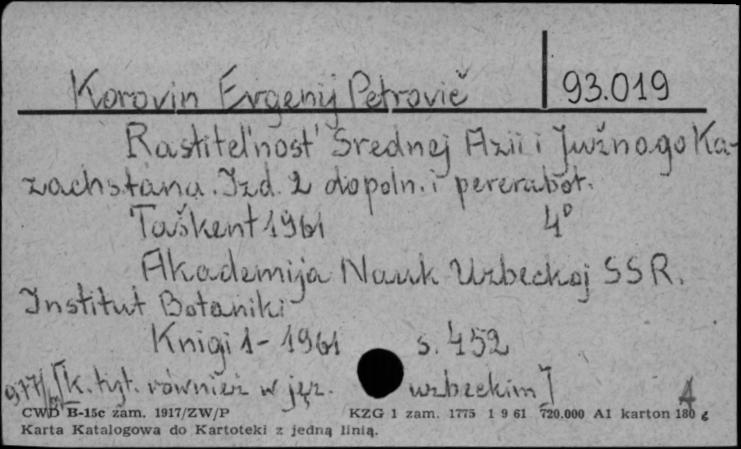 Korovin Evgenij Petrovič 93.019
Rastitel'nost' Srednej Azii i Južnogo Ka-
zachstana. Izd. 2 dopoln. i pererabot.
Taškent 1961 4°
Akademija Nauk Uzbeckoj SSR.
Institut Botaniki
Knigi 1- 1961 s. 452
[K. tyt. również w jęz. uzbeckim]
CWD B-15c zam. 1917/ZW/P KZG 1 zam. 1775 1 9 61 720.000 A1 karton 180 g
Karta Katalogowa do Kartoteki z jedną linią.